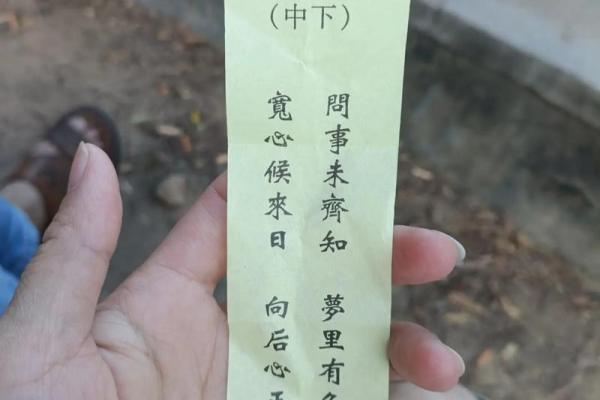 （中下）
問事未齊知　夢里有
寬心候來日　向后心